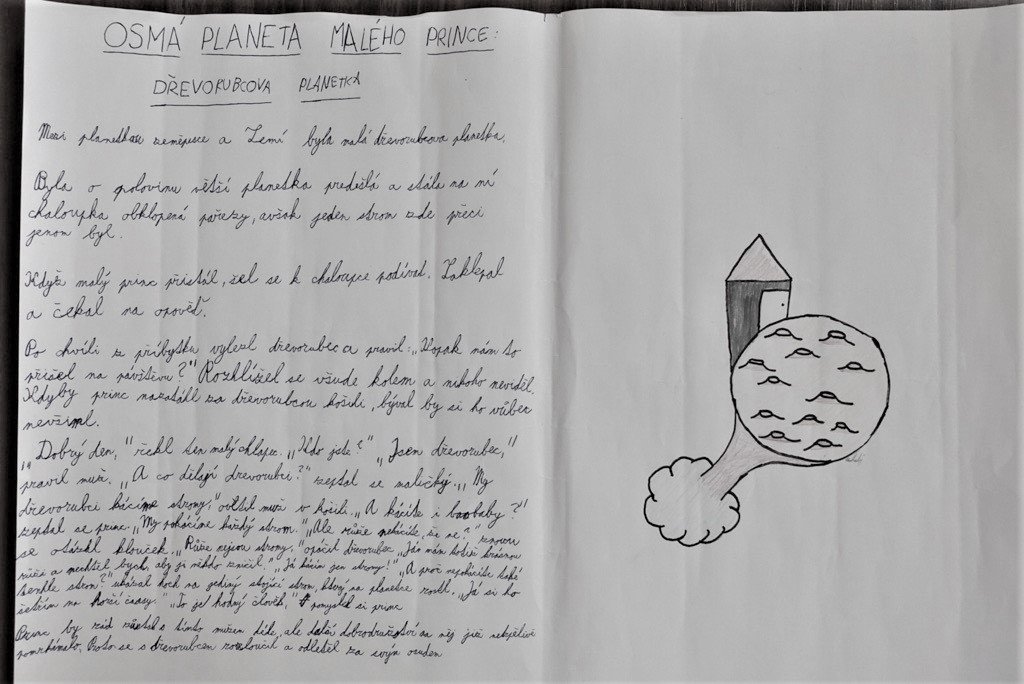 OSMÁ PLANETA MALÉHO PRINCE:
DŘEVORUBCOVA PLANETKA
Mezi planetkou zeměpisce a Zemí byla malá dřevorubcova planetka.
Byla o polovinu větší planetka předešlá a stála na ní
chaloupka obklopená pařezy, avšak jeden strom zde přeci
jenom byl.
Když malý princ přistál, šel se k chaloupce podívat. Zaklepal
a čekal na opověď.
Po chvíli z příbytku vylezl dřevorubec a pravil: „Kopak nám to
přišel na návštěvu?" Rozhlížel se všude kolem a nikoho neviděl.
Kdyby princ nezatáhl za dřevorubcou košili, býval by si ho vůbec
nevšiml.
„Dobrý den," řekl ten malý chlapec. „Kdo jste?" „Jsem dřevorubec,"
pravil muž. „A co dělají dřevorubci?" zeptal se maličký. „My
dřevorubci kácíme stromy," odvětil muž v košili. „A kácíte i baobaby?"
zeptal se princ. „My pokácíme každý strom." „Ale růže nekácíte, že ne?" znovu
se otázal klouček. „Růže nejsou stromy," opáčil dřevorubec. „Já mám kdesi krásnou
růži a nechtěl bych, aby ji někdo zničil." „Já kácím jen stromy!" „A proč nepokácíte také
tenhle strom?" ukázal hoch na jediný stojící strom, který na planetce rostl. „Já si ho
šetřím na horší časy." „To je hodný člověk," pomyslel si princ
Princ by rád zůstal s tímto mužem déle, ale další dobrodružství na něj již netrpělivě
pomrkávalo. Proto se s dřevorubcem rozloučil a odletěl za svým osudem